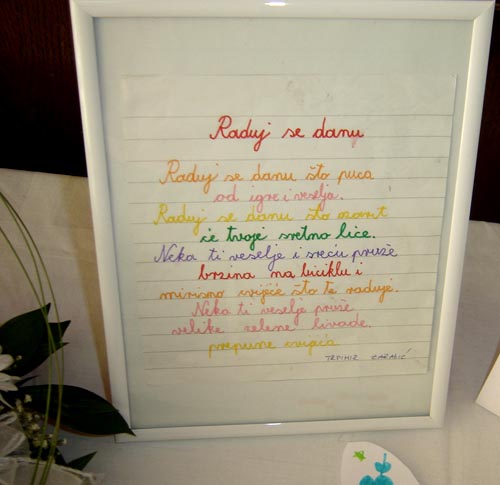 Raduj se danu
Raduj se danu što puca
od igre i veselja.
Raduj se danu što ozarit
će tvoje sretno lice.
Neka ti veselje i sreću pruže
brzina na biciklu i
mirisno cvijeće što te raduje.
Neka ti veselje pruže
velike zelene livade.
prepune cvijeća
TRPIMIR